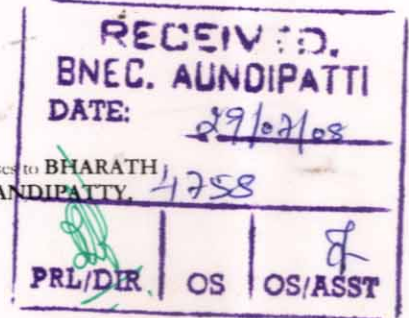 RECEIV :D.
BNEC. AUNDIPATTI
DATE: 29/07/08
ses to BHARATH
ANDIPATTY. 4758
PRL/DIR OS OS/ASST